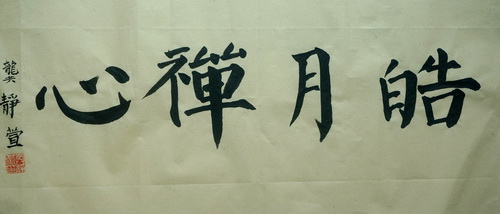 皓月禪心
龔靜萱